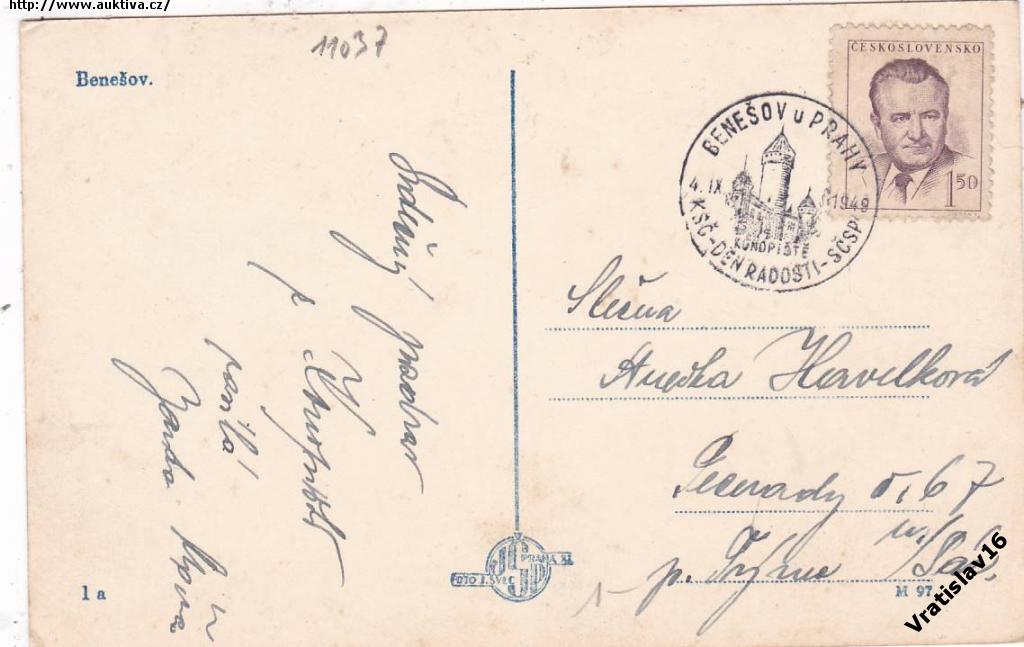 http://www.auktiva.cz/
11037
Benešov.
Srdečný pozdrav
z Konopiště
zasílá
ČESKOSLOVENSKO
1 50
BENEŠOV u PRAHY
4. IX. 1949
KONOPIŠTĚ
KSČ-DEN RADOSTI-SČSP
Slečna
Anežka Havelková
č. 67
p. Týnec n/Sáz
FOTO J. ŠVEC PRAHA XI.
JŠP
1 a
M 97
Vratislav16